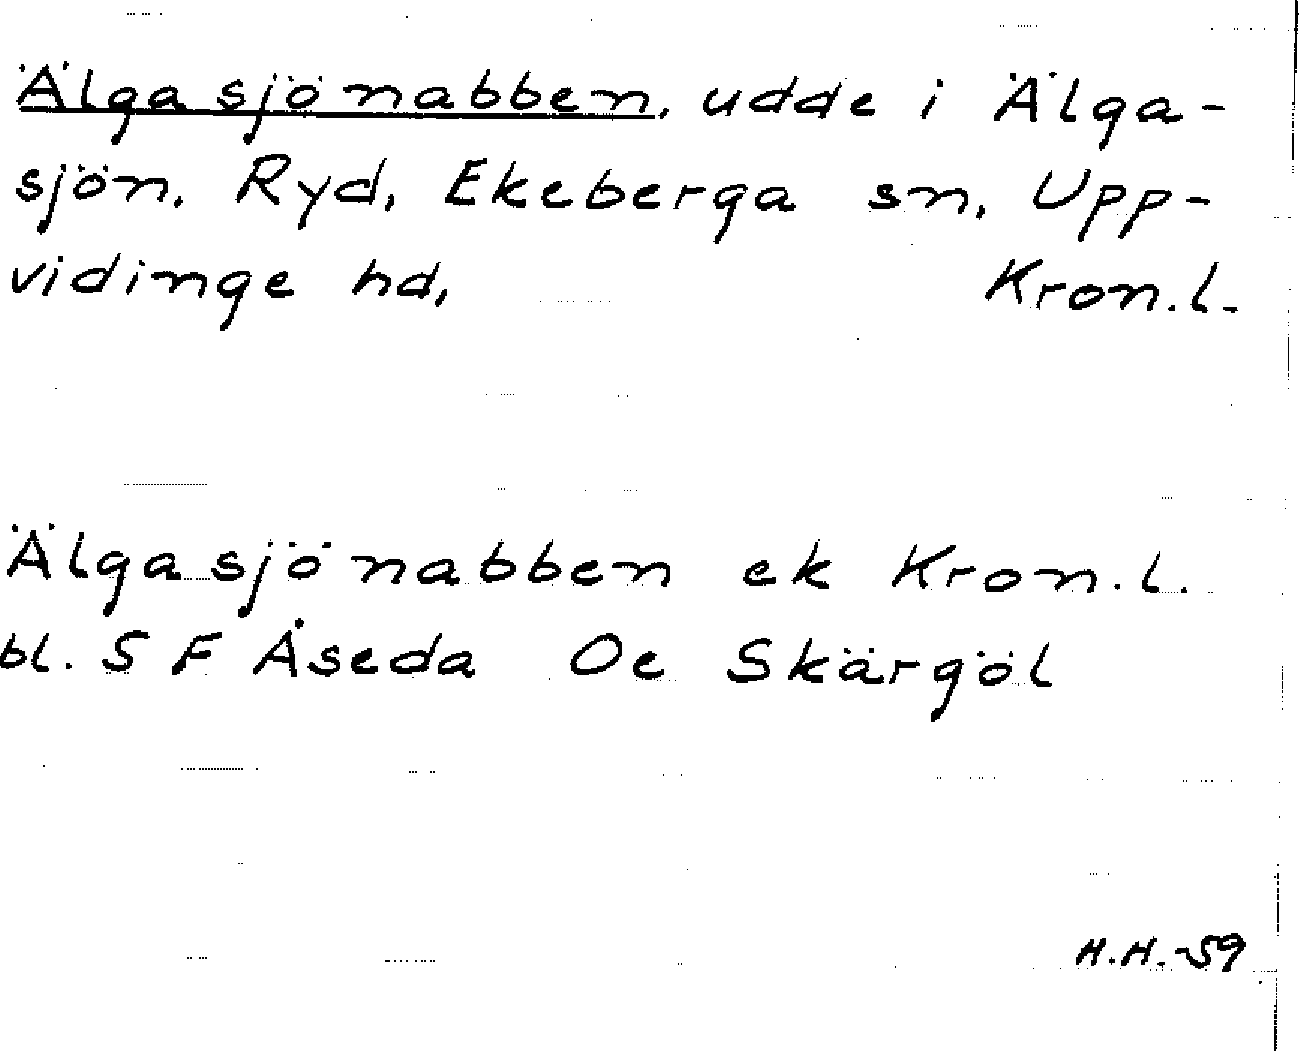 Älgasjönabben, udde i Älga-
sjön, Ryd, Ekeberga sn, Upp-
vidinge hd, Kron.l.
Älgasjönabben ek Kron.l.
bl. 5 F Åseda Oe Skärgöl
H.H.-59